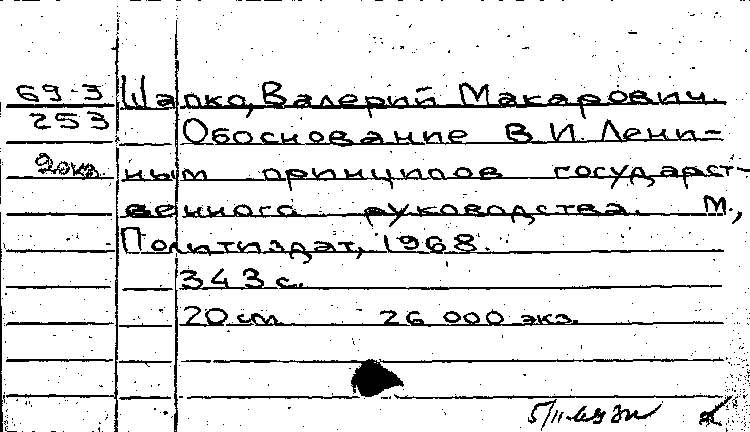 69-3 Шапко, Валерий Макарович.
253 Обоснование В.И. Лени-
ным принципов государст-
венного руководства. М.,
Политиздат, 1968.
343 с.
20 см 26 000 экз.